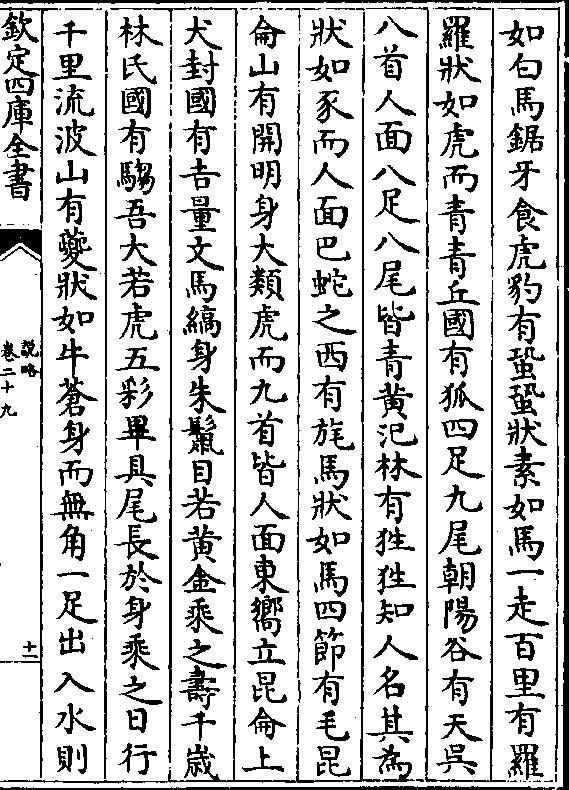 如白馬鋸牙食虎豹有蛩蛩狀素如馬一走百里有羅
羅狀如虎而青青丘國有狐四足九尾朝陽谷有天吳
八首人面八足八尾皆青黃汜林有狌狌知人名其為
狀如豕而人面巴蛇之西有旄馬狀如馬四節有毛昆
侖山有開明身大類虎而九首皆人面東嚮立昆侖上
犬封國有吉量文馬縞身朱鬣目若黃金乘之壽千歲
林氏國有騶吾大若虎五彩畢具尾長於身乘之日行
千里流波山有夔狀如牛蒼身而無角一足出入水則
欽定四庫全書
說略
卷二十九
十一